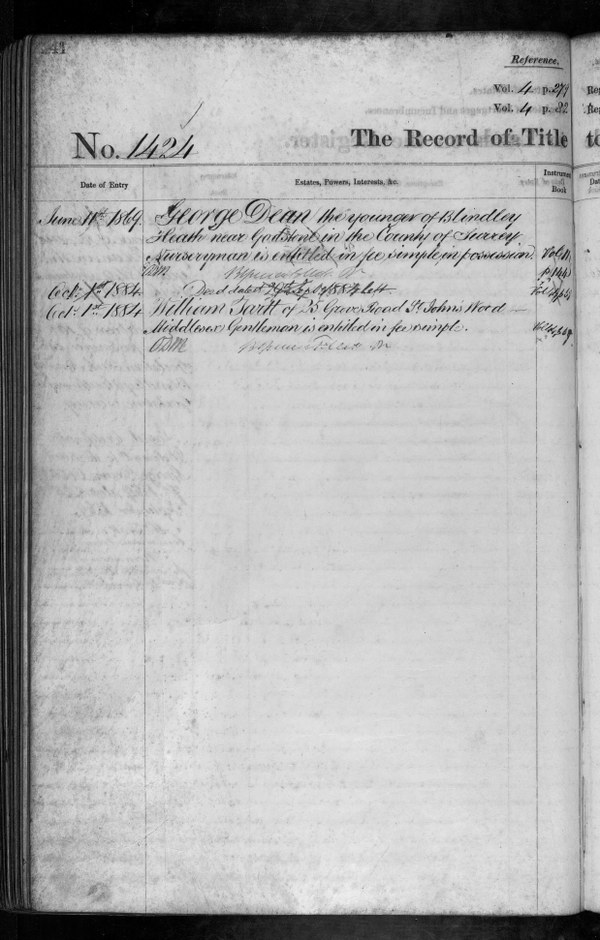 241
Reference.
Vol. 4 p. 279
Vol. 4 p. 32
No. 1424
The Record of Title
to
Date of Entry
Estates, Powers, Interests, &c.
Instrument Book
June 11th 1869. George Dean the younger of Blindley
Heath near Godstone in the County of Surrey
Nurseryman is entitled in fee simple in possession. Vol.
p. 143
Oct. 1st 1884 Deed dated 29th Sept 1884 left
Oct. 1st 1884 William Tartt of 25 Grove Road St. Johns Wood
Middlesex Gentleman is entitled in fee simple.